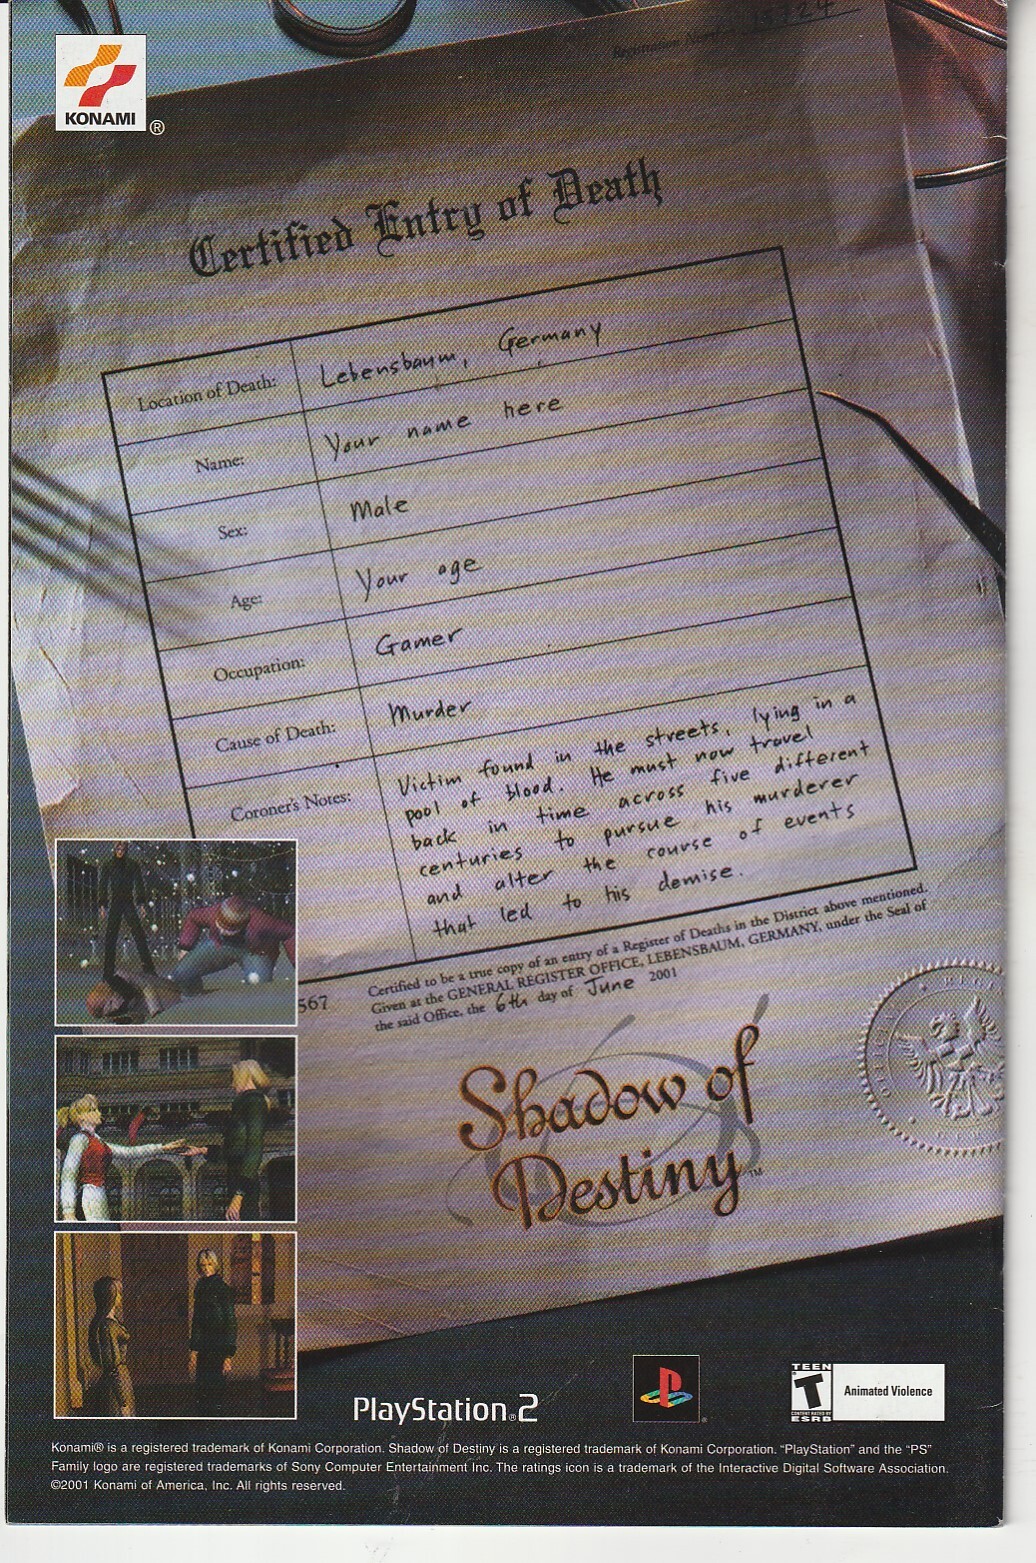 Registration Number
KONAMI ®
Certified Entry of Death
Location of Death: Lebensbaum, Germany
Name: Your name here
Sex: Male
Age: Your age
Occupation: Gamer
Cause of Death: Murder
Coroner's Notes: Victim found in the streets, lying in a
pool of blood. He must now travel
back in time across five different
centuries to pursue his murderer
and alter the course of events
that led to his demise.
567
Certified to be a true copy of an entry of a Register of Deaths in the District above mentioned.
Given at the GENERAL REGISTER OFFICE, LEBENSBAUM, GERMANY, under the Seal of
the said Office, the 6th day of June 2001
Shadow of
Destiny™
PlayStation®2
TEEN
T
CONTENT RATED BY
ESRB
Animated Violence
Konami® is a registered trademark of Konami Corporation. Shadow of Destiny is a registered trademark of Konami Corporation. “PlayStation” and the “PS”
Family logo are registered trademarks of Sony Computer Entertainment Inc. The ratings icon is a trademark of the Interactive Digital Software Association.
©2001 Konami of America, Inc. All rights reserved.